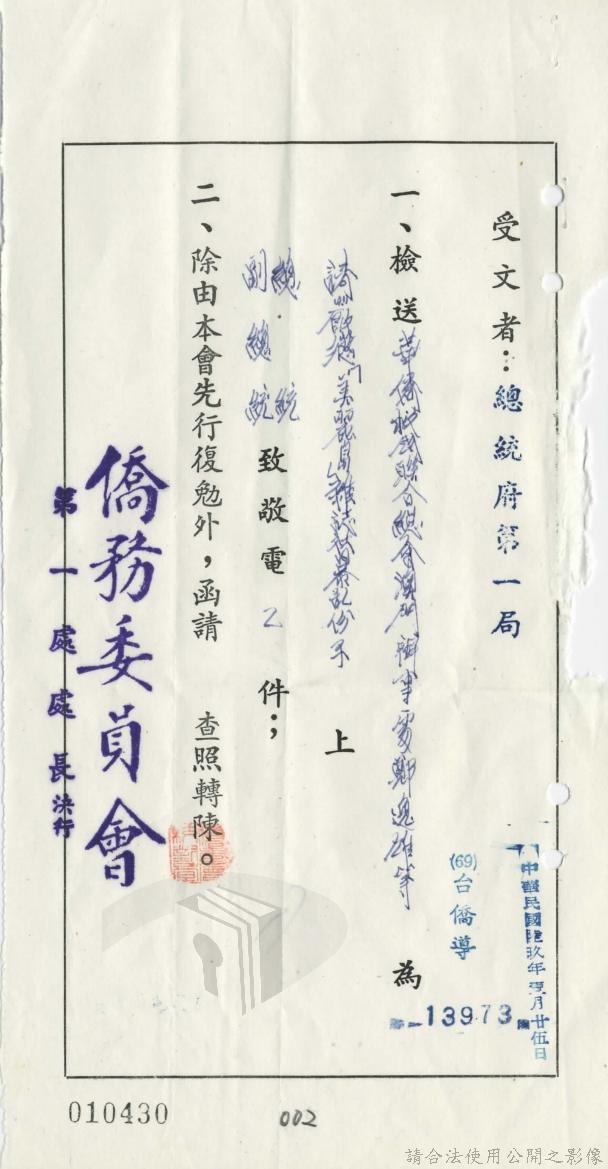 受文者：總統府第一局
中華民國陸玖年 月廿伍日
(69)台僑導
13973
一、檢送華僑救國聯合總會澳門辦事處鄭逸雄等 為
上
總統
副總統 致敬電 乙 件；
二、除由本會先行復勉外，函請 查照轉陳。
僑務委員會
第一處處長決行
010430
002
請合法使用公開之影像